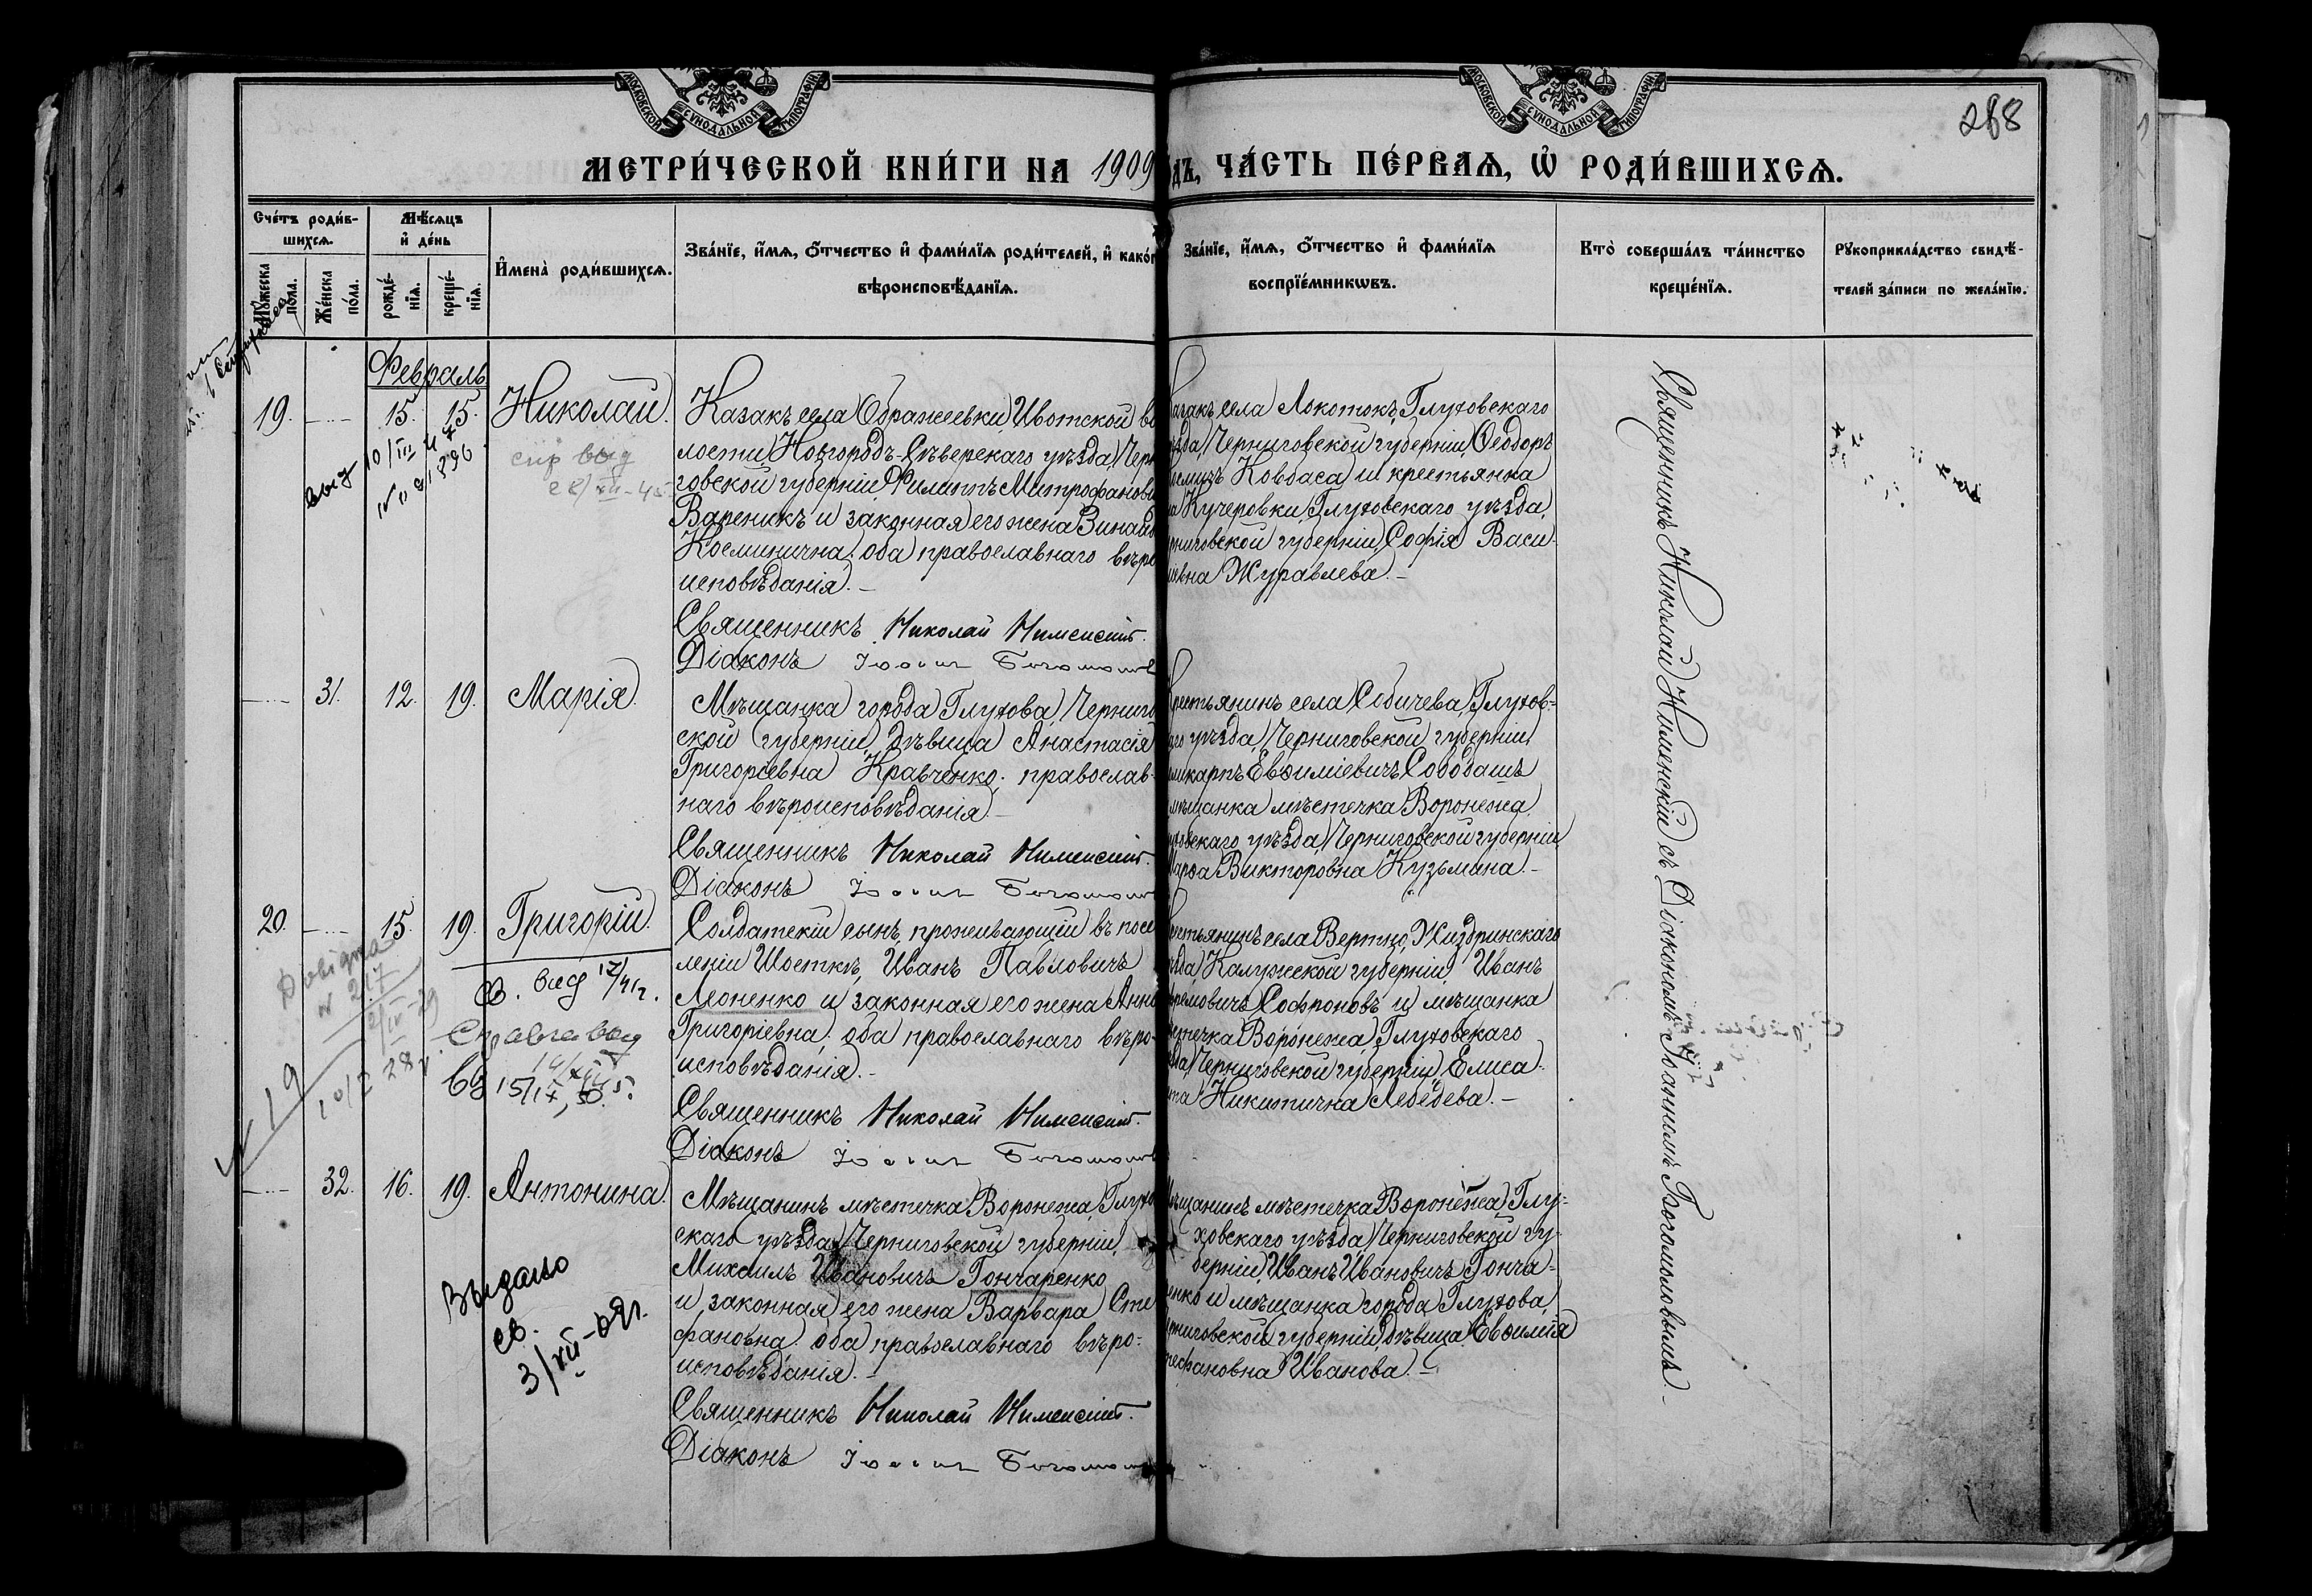 МОСКОВСКОЙ СѴНОДАЛЬНОЙ ТИПОГРАФІИ
МОСКОВСКОЙ СѴНОДАЛЬНОЙ ТИПОГРАФІИ
288
МЕТРИ́ЧЕСКОЙ КНИ́ГИ НА 1909
дъ, ЧА́СТЬ ПЕ́РВАѦ, Ѽ РОДИ́ВШИХСѦ.
Сче́тъ роди́в-
шихсѧ.
Мꙋ́жеска
по́ла.
Же́нска
по́ла.
Мѣ́сѧцъ
и҆ де́нь
рожде́-
нїѧ.
креще́-
нїѧ.
И҆мена̀ роди́вшихсѧ.
Зва́нїе, и҆́мѧ, ѻ҆́тчество и҆ фами́лїѧ роди́телей, и҆ како́г
вѣроисповѣ́данїѧ.
Зва́нїе, и҆́мѧ, ѻ҆́тчество и҆ фами́лїѧ
воспрїе́мникѡвъ.
Кто̀ соверша́лъ та́инство
креще́нїѧ.
Рꙋкоприкла́дство свидѣ́-
телей за́писи по жела́нїю.
Февраль
19. 15. 15. Николай.
Казакъ села Ображеевки, Ивотской во
лости, Новгородъ-Сѣверскаго уѣзда, Черн
говской губерніи, Филиппъ Митрофанови
Вареникъ и законная его жена Зинаид
Косминична; оба православнаго вѣро
исповѣданія.-
Священникъ Николай Нименскій.
Діаконъ Іоаннъ Богомолов
азакъ села Локотокъ, Глуховскаго
ѣзда, Черниговской губерніи, Ѳеодоръ
осмичъ Ковбаса и крестьянка
а Кучеровки, Глуховскаго уѣзда,
рниговской губерніи, Софія Васи-
іевна Журавлева.-
выд
спр выд
31. 12. 19. Марія.
Мѣщанка города Глухова, Чернигов
ской губерніи, дѣвица Анастасія
Григоріевна Кравченко; православ-
наго вѣроисповѣданія.-
Священникъ Николай Нименскій.
Діаконъ Іоаннъ Богомолов
рестьянинъ села Собичева, Глухов-
аго уѣзда, Черниговской губерніи,
ликарпъ Евѳиміевичъ
мѣщанка мѣстечка Воронежа,
уховскаго уѣзда, Черниговской губерніи,
Марѳа Викторовна Кузьмина.-
20. 15. 19. Григорій.
Солдатскій сынъ, проживающій въ посе
леніи Шосткѣ, Иванъ Павловичъ
Леоненко и законная его жена Анна
Григоріевна; оба православнаго вѣро-
исповѣданія.-
Священникъ Николай Нименскій.
Діаконъ Іоаннъ Богомолов
естьянинъ села Вертно, Жиздринскаго
ѣзда, Калужской губерніи, Иванъ
фремовичъ Софроновъ и мѣщанка
стечка Воронежа, Глуховскаго
зда, Черниговской губерніи, Елиса-
та Никитична Лебедева.-
Справка выд
N 19
32. 16. 19. Антонина.
Мѣщанинъ мѣстечка Воронежа, Глухо
скаго уѣзда, Черниговской губерніи,
Михаилъ Ивановичъ Гончаренко
и законная его жена Варвара Сте
фановна; оба православнаго вѣро-
исповѣданія.-
Священникъ Николай Нименскій.
Діаконъ Іоаннъ Богомолов
ѣщанинъ мѣстечка Воронежа, Глу-
ховскаго уѣзда, Черниговской гу-
берніи, Иванъ Ивановичъ Гонча-
енко и мѣщанка города Глухова,
рниговской губерніи, дѣвица Евѳимія
тефановна Иванова.-
Выдано
св.
3/VII-09г.
Священникъ Николай Нименскій съ Діакономъ Іоанномъ Богомоловымъ.-